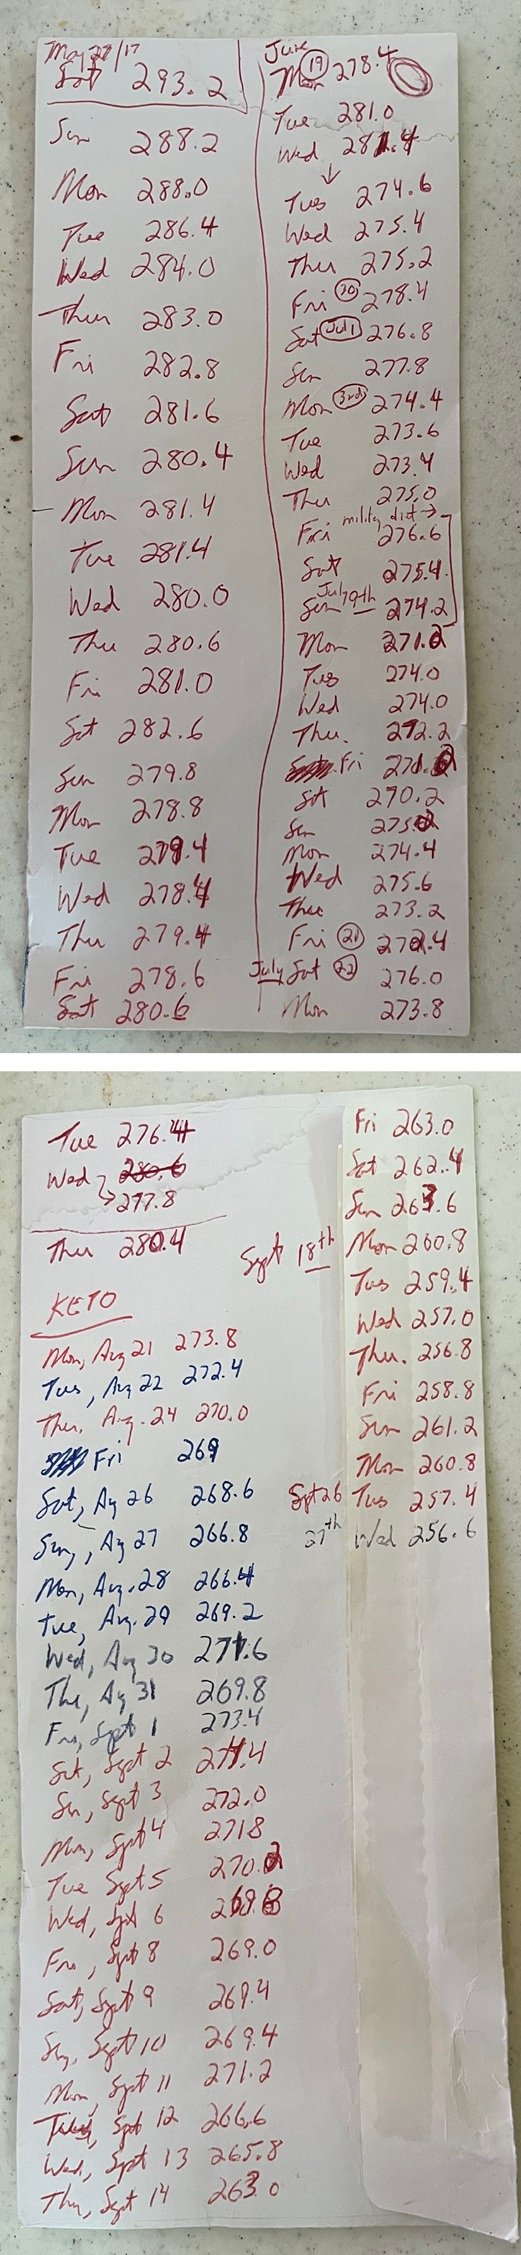 May 27/17
Sat 293.2
Sun 288.2
Mon 288.0
Tue 286.4
Wed 284.0
Thur 283.0
Fri 282.8
Sat 281.6
Sun 280.4
Mon 281.4
Tue 281.4
Wed 280.0
Thu 280.6
Fri 281.0
Sat 282.6
Sun 279.8
Mon 278.8
Tue 279.4
Wed 278.4
Thu 279.4
Fri 278.6
Sat 280.6
June
Mon 19 278.4
Tue 281.0
Wed 281.4
↓
Tues 274.6
Wed 275.4
Thu 275.2
Fri 30 278.4
Sat Jul 1 276.8
Sun 277.8
Mon 3rd 274.4
Tue 273.6
Wed 273.4
Thu 275.0
diet →
Fri 276.6
Sat 275.4
July 9th
Sun 274.2
Mon 271.2
Tues 274.0
Wed 274.0
Thu. 272.2
Fri
Sat 270.2
Sun
Mon 274.4
Wed 275.6
Thu 273.2
Fri 21 272.4
July Sat 22 276.0
Mon 273.8
Tue 276.4
Wed 280.6
→ 277.8
Thu 280.4
KETO
Mon, Aug 21 273.8
Tues, Aug 22 272.4
Thu, Aug. 24 270.0
Fri 269
Sat, Ag 26 268.6
Sun, Ag 27 266.8
Mon, Aug. 28 266.4
Tue, Aug. 29 269.2
Wed, Ag 30 271.6
Thu, Ag 31 269.8
Fri, Sept 1 273.4
Sat, Sept 2 271.4
Sun, Sept 3 272.0
Mon, Sept 4 271.8
Tue Sept 5 270.2
Wed, Sept 6
Fri, Sept 8 269.0
Sat, Sept 9 269.4
Sun, Sept 10 269.4
Mon, Sept 11 271.2
Tues, Sept 12 266.6
Wed, Sept 13 265.8
Thu, Sept 14 263.0
Fri 263.0
Sat 262.4
Sun 263.6
Sept 18th Mon 260.8
Tues 259.4
Wed 257.0
Thu. 256.8
Fri 258.8
Sun 261.2
Mon 260.8
Sept 26 Tues 257.4
27th Wed 256.6